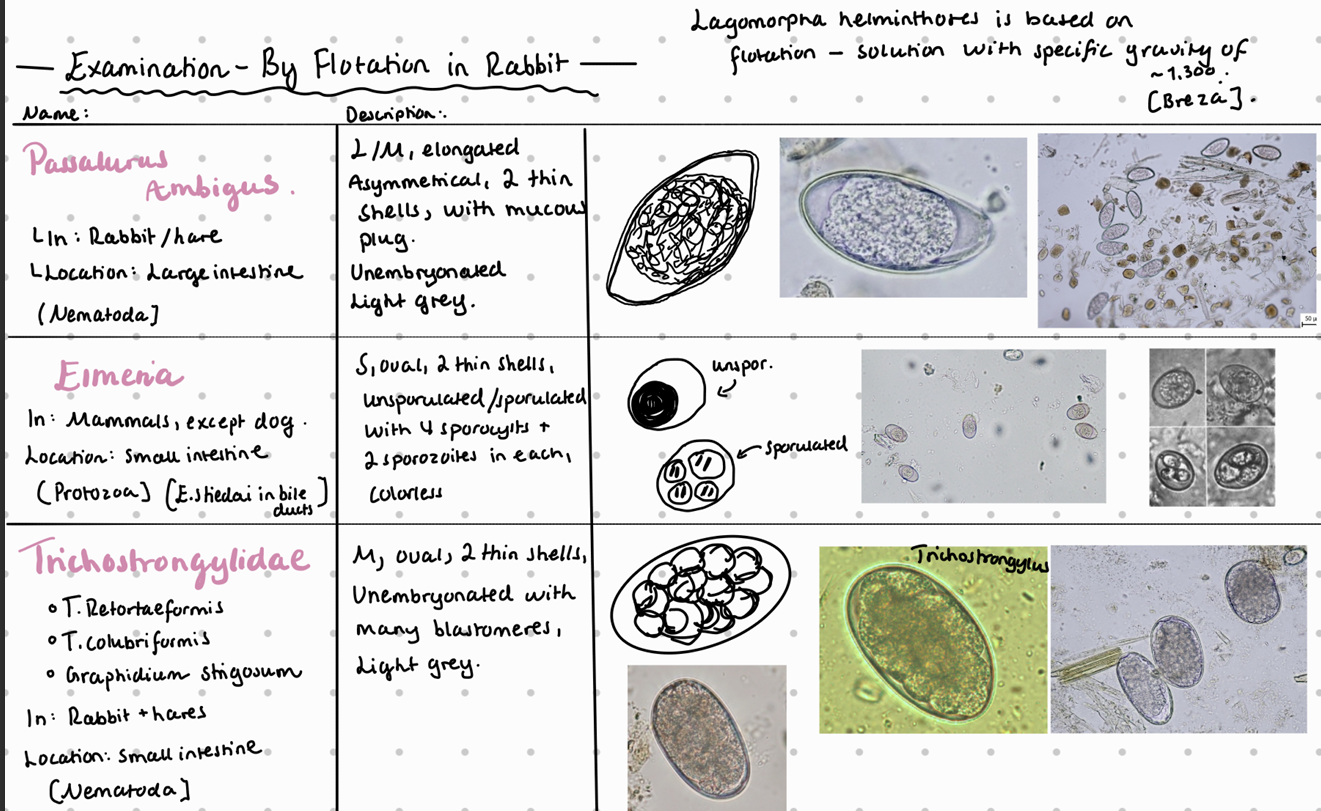 Lagomorpha helminthoses is based on
flotation – solution with specific gravity of
~1.300.
[Breza].
Examination - By Flotation in Rabbit
Name:
Description:
Passalurus
Ambigus.
In: Rabbit/hare
Location: Large intestine
(Nematoda]
L/M, elongated
Asymmetrical, 2 thin
shells, with mucous
plug.
Unembryonated
Light grey.
50 µ
Eimeria
In: Mammals, except dog.
Location: Small intestine
(Protozoa] [E. stiedai in bile
ducts]
S, oval, 2 thin shells,
unsporulated/sporulated
with 4 sporocysts +
2 sporozoites in each,
Colorless
unspor.
sporulated
Trichostrongylidae
T. Retortaeformis
T. colubriformis
Graphidium strigosum
In: Rabbit + hares
Location: Small intestine
[Nematoda]
M, oval, 2 thin shells,
Unembryonated with
many blastomeres,
Light grey.
Trichostrongylus